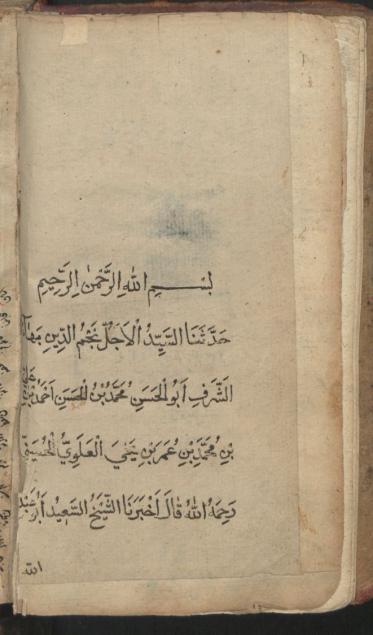 بِسْمِ اللهِ الرَّحْمٰنِ الرَّحِيمِ
حَدَّثَنَا السَّيِّدُ الْاَجَلُّ نَجْمُ الدِّينِ بَهَاءُ
الشَّرَفِ اَبُو الْحَسَنِ مُحَمَّدُ بْنُ الْحَسَنِ اَحْمَدَ بْنِ عَلِيِّ
بْنِ مُحَمَّدِ بْنِ عُمَرَ بْنِ يَحْيَى الْعَلَوِيُّ الْحُسَيْنِيُّ
رَحِمَهُ اللهُ قَالَ اَخْبَرَنَا الشَّيْخُ السَّعِيدُ اَبُو عَبْدِ
الله